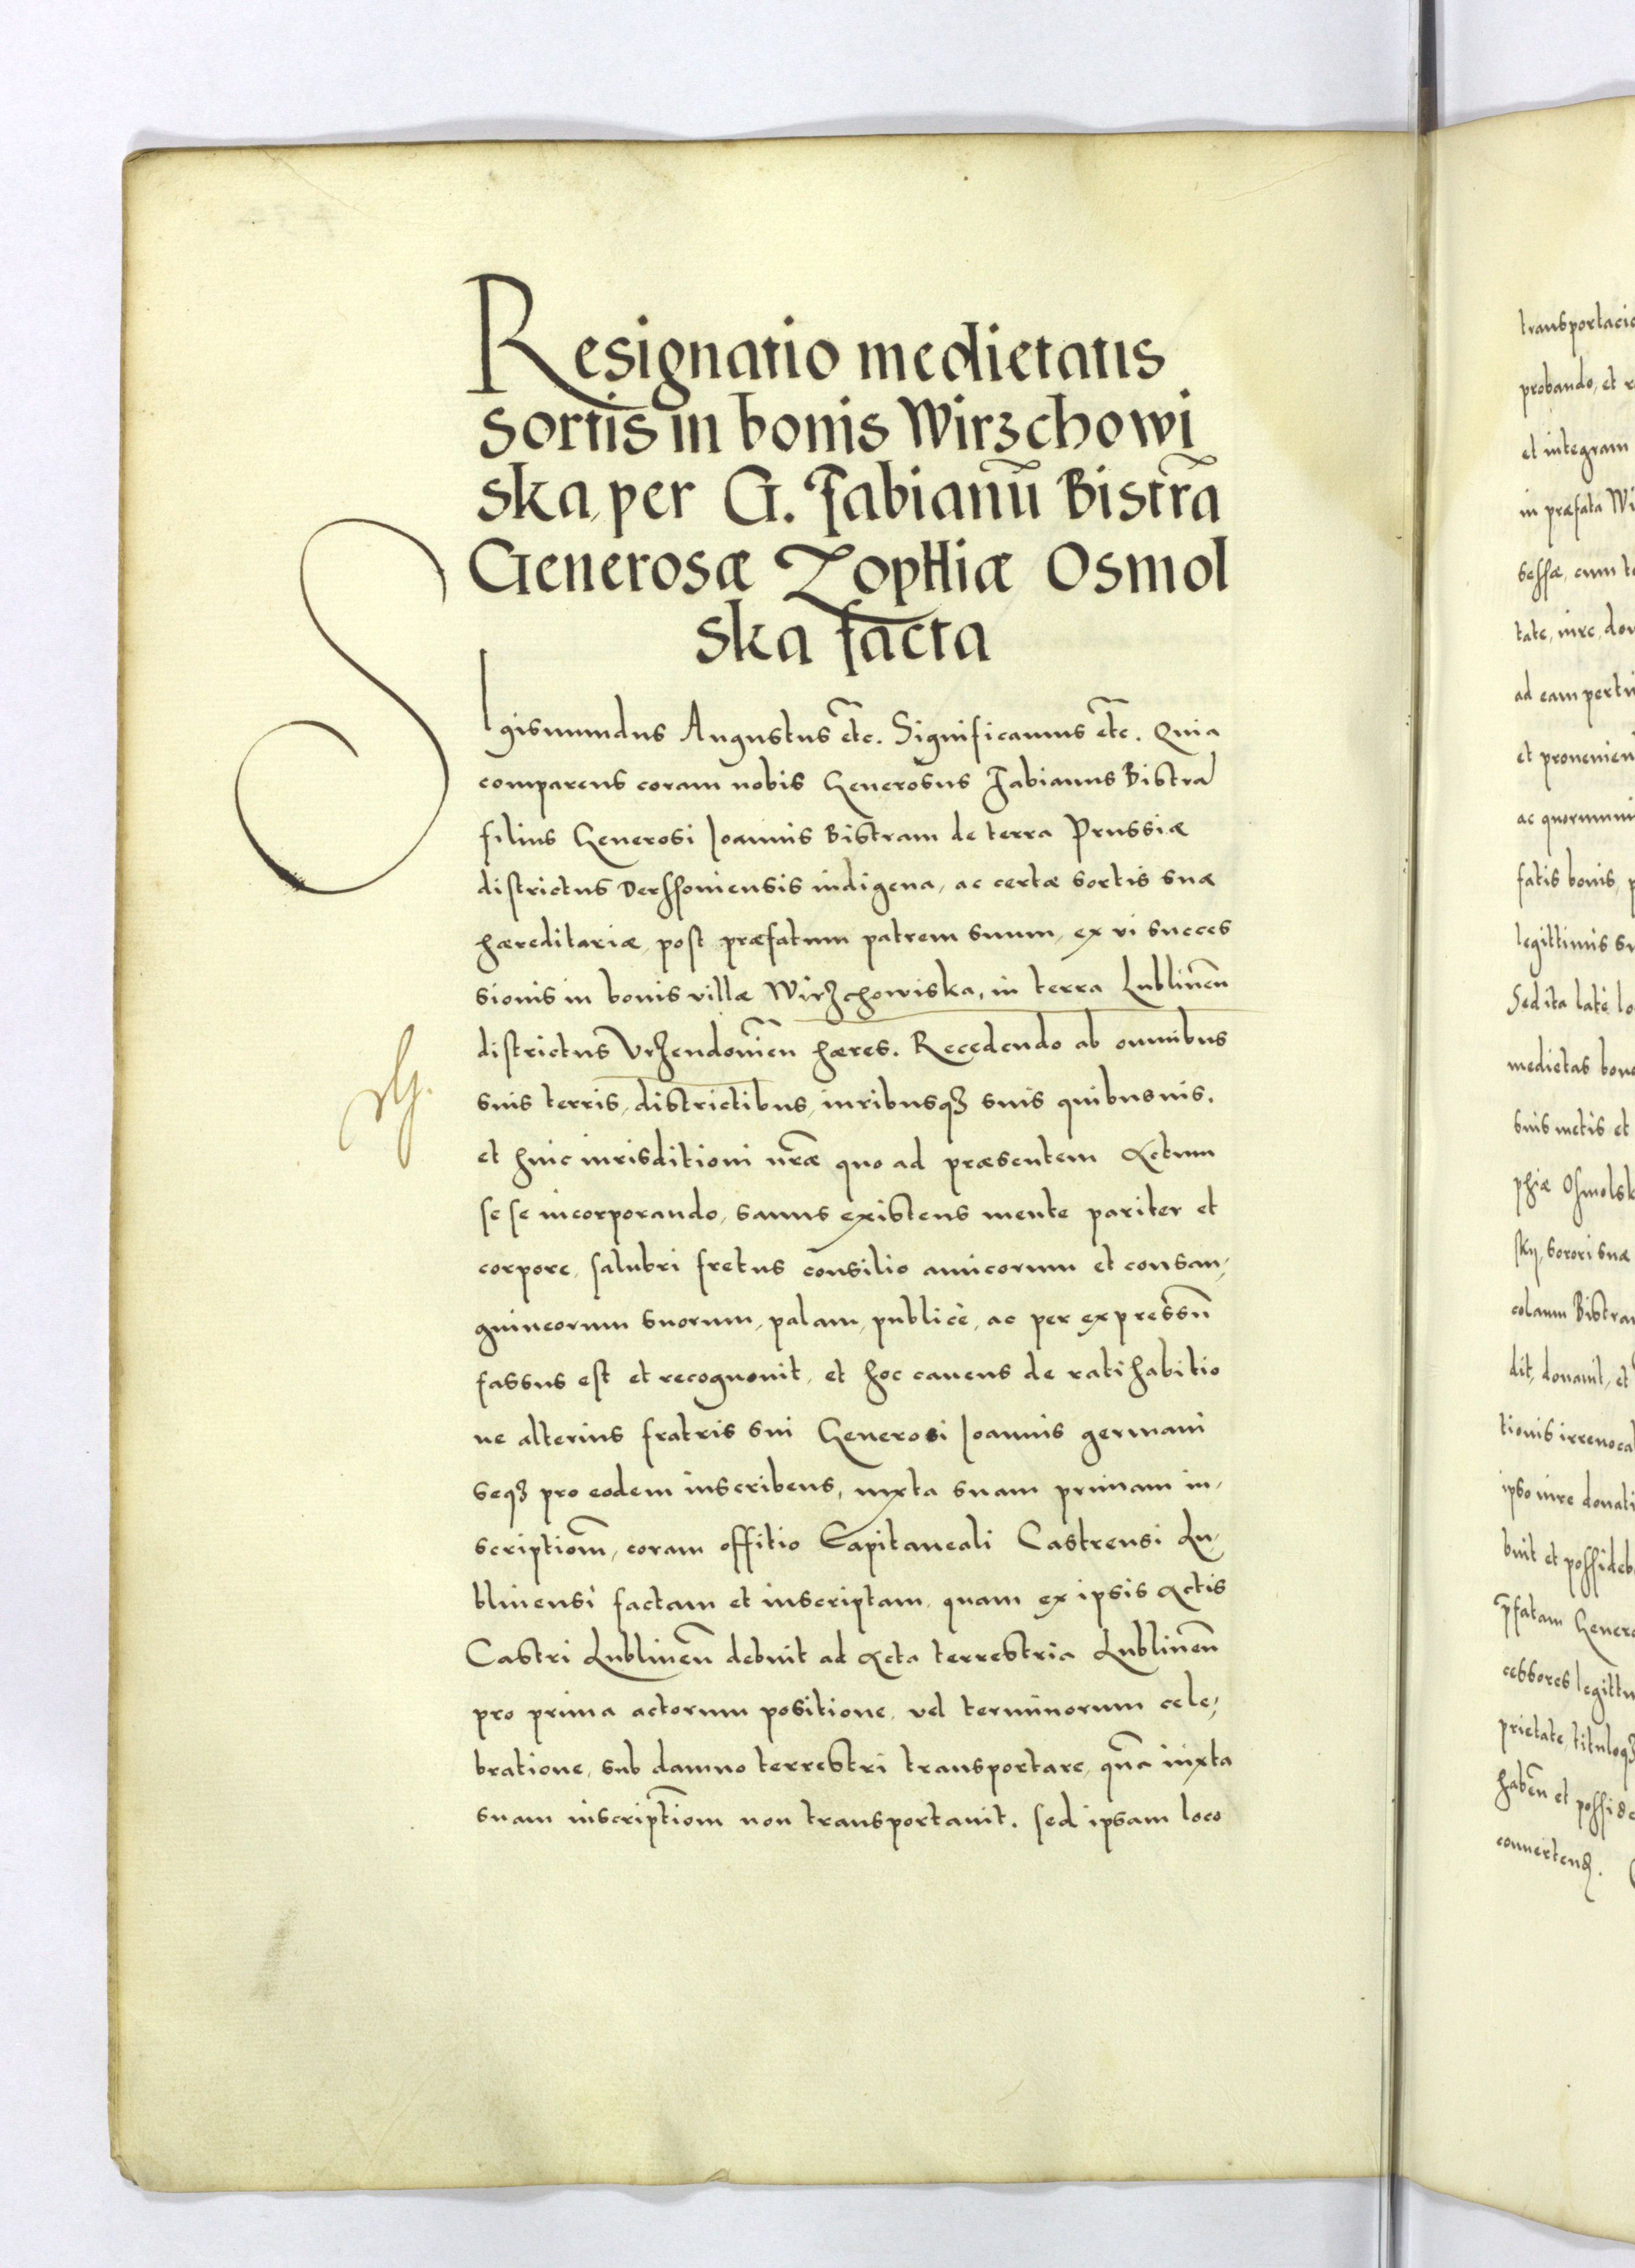 Resignatio medietatis
sortis in bonis Wirzchowi
ska, per G. Fabianũ Bistrã
Generosæ Zophiæ Osmol
ska facta
Sigismundus Augustus et̃c. Significamus et̃c. Quia
comparens coram nobis Generosus Fabianus Bistra
filius Generosi Joannis Bistram de terra Prussiæ
districtus Derssoviensis indigena, ac certæ sortis suæ
hæreditariæ, post præfatum patrem suum, ex vi succes
sionis in bonis villæ Wirzchowiska, in terra Lublineñ
districtus Vrzendovieñ hæres. Recedendo ab omnibus
suis terris, districtibus, iuribusqȝ suis quibusuis,
et huic iurisditioni nr̃æ quo ad præsentem Actum
se se incorporando, sanus existens mente pariter et
corpore, salubri fretus consilio amicorum et consan,
guineorum suorum, palam, publicè, ac per expressũ
fassus est et recognouit, et hoc cauens de ratihabitio
ne alterius fratris sui Generosi Joannis germani
seqȝ pro eodem inscribens, iuxta suam primam in,
scriptiom̃, coram offitio Capitaneali Castrensi Lu,
blinensi factam et inscriptam, quam ex ipsis Actis
Castri Lublineñ debuit ad Acta terrestria Lublineñ
pro prima actorum positione, vel terminorum cele,
bratione, sub damno terrestri transportare, quã iuxta
suam inscriptiom̃ non transportauit. sed ipsam loco
transportacio
probando, et r
et integram
in præfata Wi
sessæ, cum to
tate, iure, dom
ad eam pertin
et prouenien
ac quorumui
fatis bonis, p
legittimis su
Sed ita latè lo
medietas bono
suis metis et
phiæ Osmolsk
skÿ, sorori suæ
colaum Bistra
dit, donauit, et
tionis irreuocab
ipso iure donati
buit et possideb
p̃fatam Genero
cessores legittim
prietate, tituloqȝ
habeñ et posside
conuertenđ.